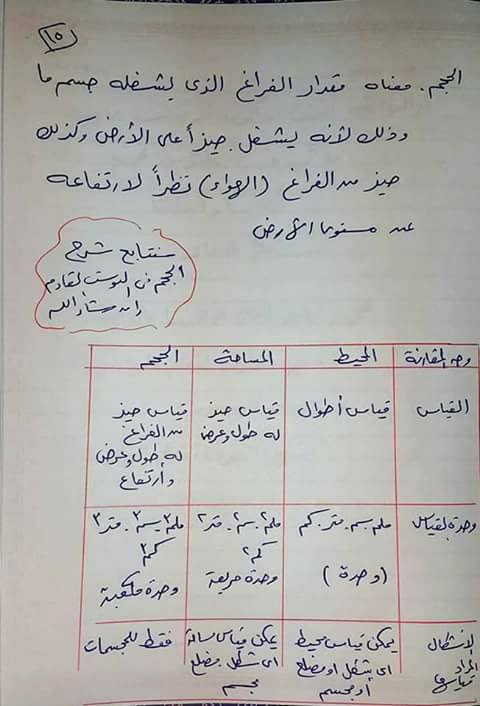 ١٥
الحجم. معناه مقدار الفراغ الذى يشغله جسم ما
وذلك لأنه يشغل حيزاً على الأرض وكذلك
حيز من الفراغ (الهواء) نظراً لارتفاعه
عن مستوى الأرض
سنتابع شرح
الحجم فى البوست القادم
إن شاء الله
وجه المقارنة المحيط المساحة الحجم
القياس قياس أطوال قياس حيز قياس حيز
له طول وعرض من الفراغ
له طول وعرض
وارتفاع
وحدة القياس ملم. سم. متر. كم ملم٢. سم٢. متر٢ ملم٣. سم٣. متر٣
كم٢ كم٣
(وحدة) وحدة مربعة وحدة مكعبة
الأشكال يمكن قياس محيط يمكن قياس مساحة فقط للمجسمات
المراد اى شكل او مضلع اى شكل مضلع
قياسها أو مجسم مجسم